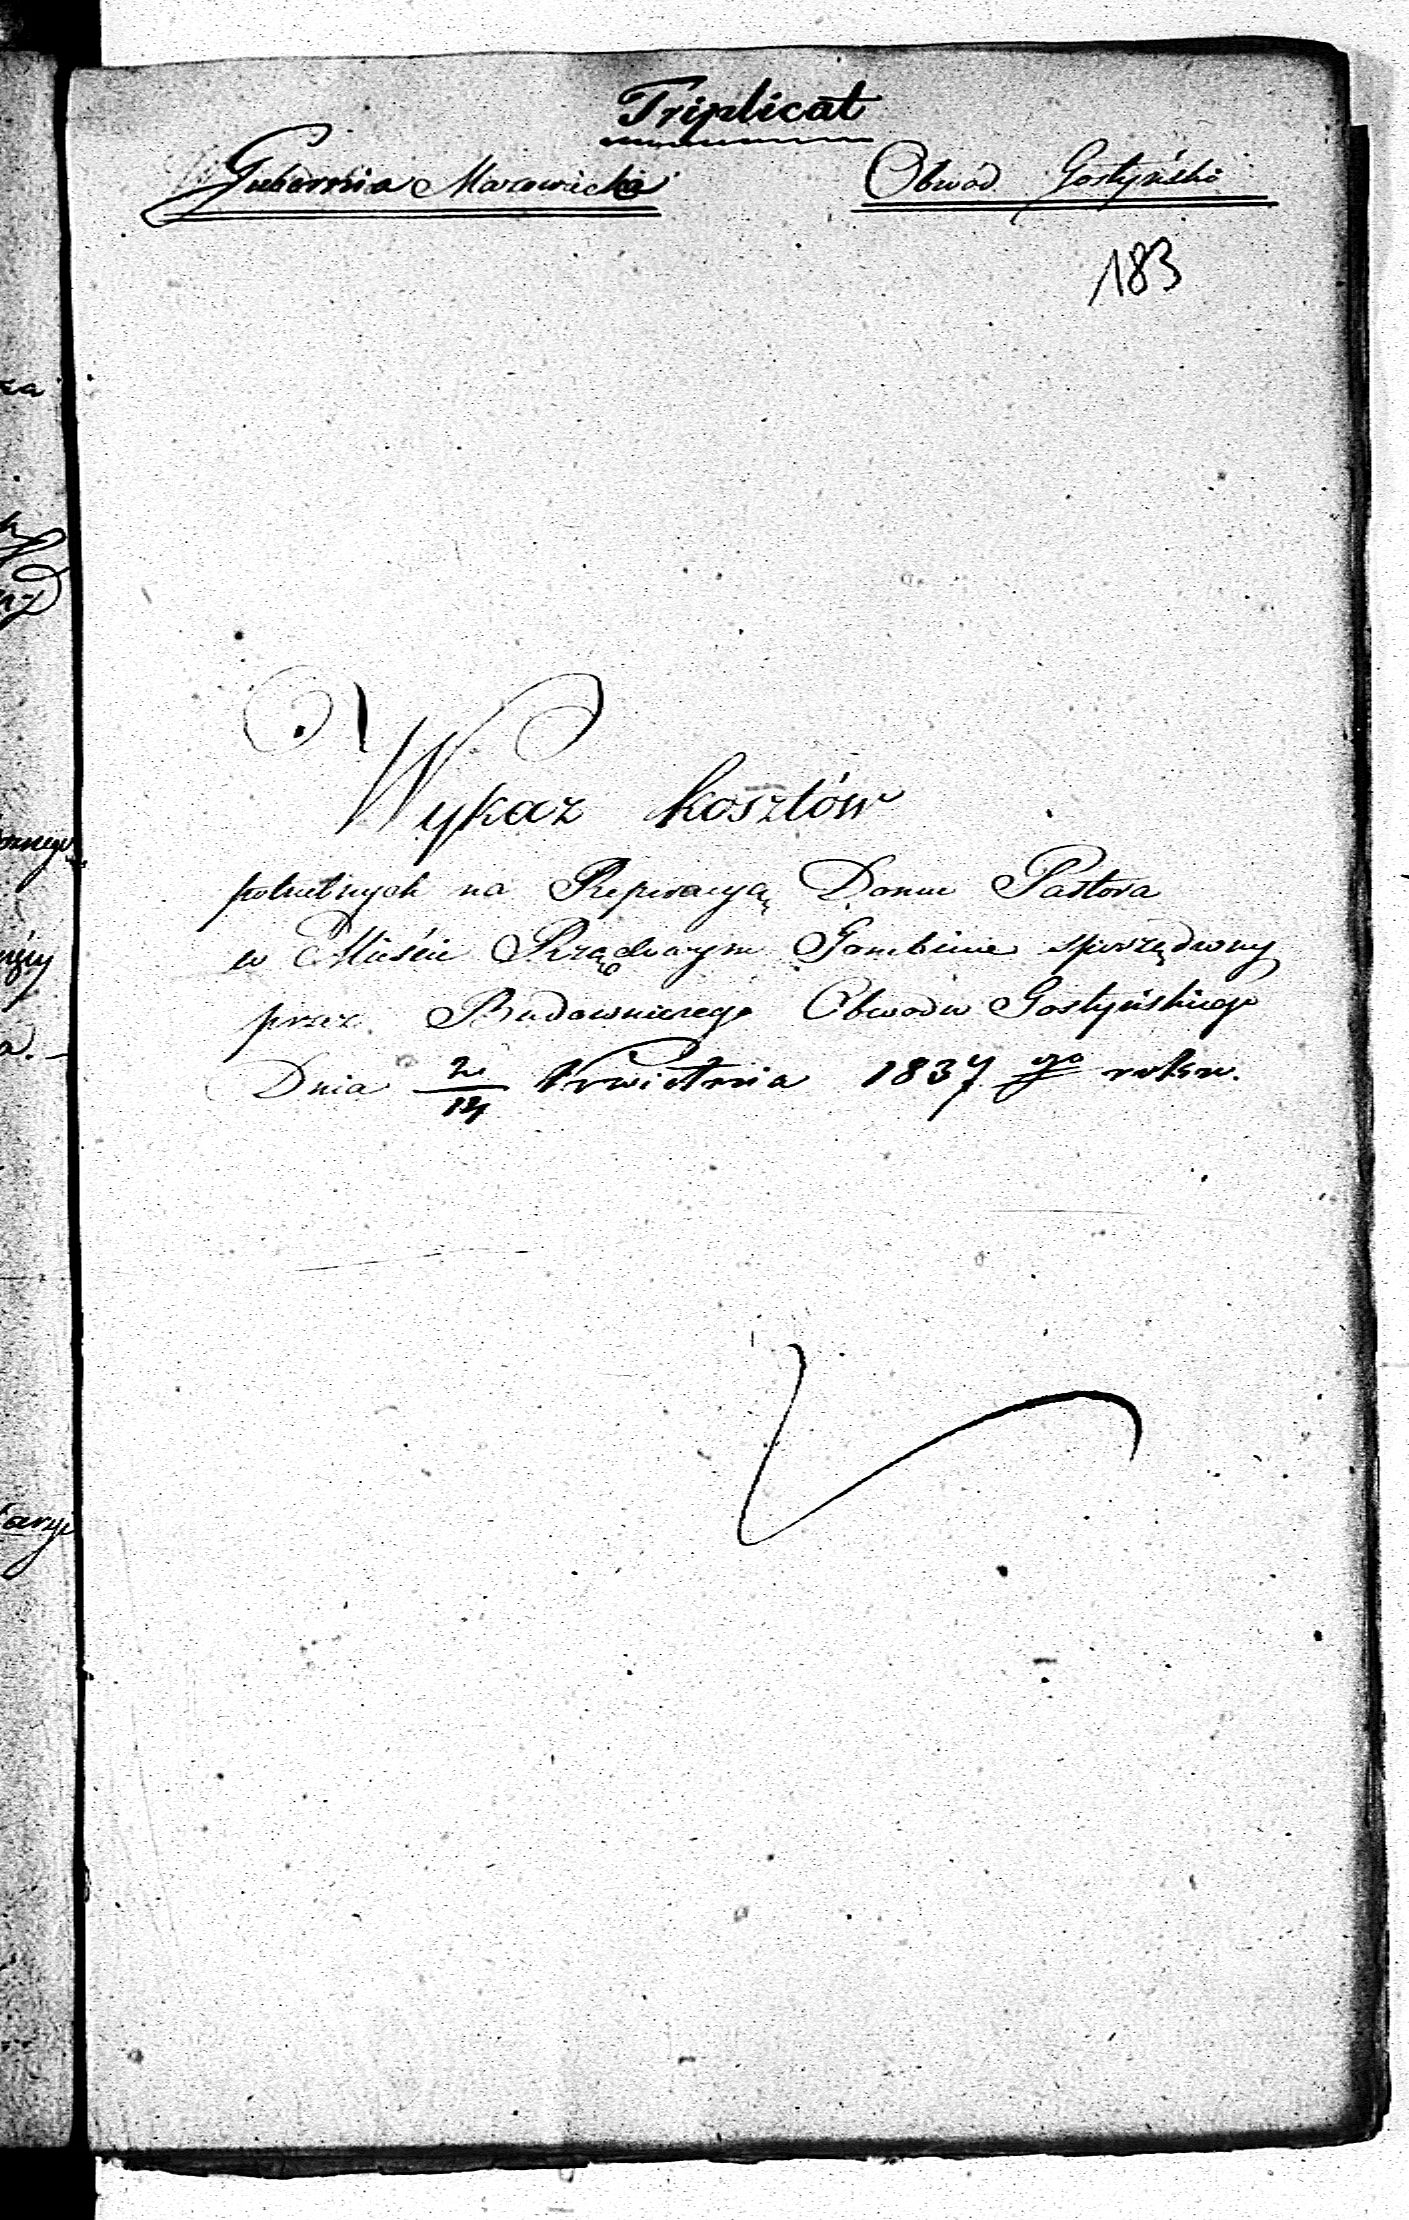 Triplicat
Gubernia Mazowiecka Obwod Gostyński
183
Wykaz kosztów
potrzebnych na Reperacyą Domu Pastora
w Mieście Rządowym Gombinie sporządzony
przez Budowniczego Obwodu Gostyńskiego
Dnia 2/14 Kwietnia 1837 go roku.